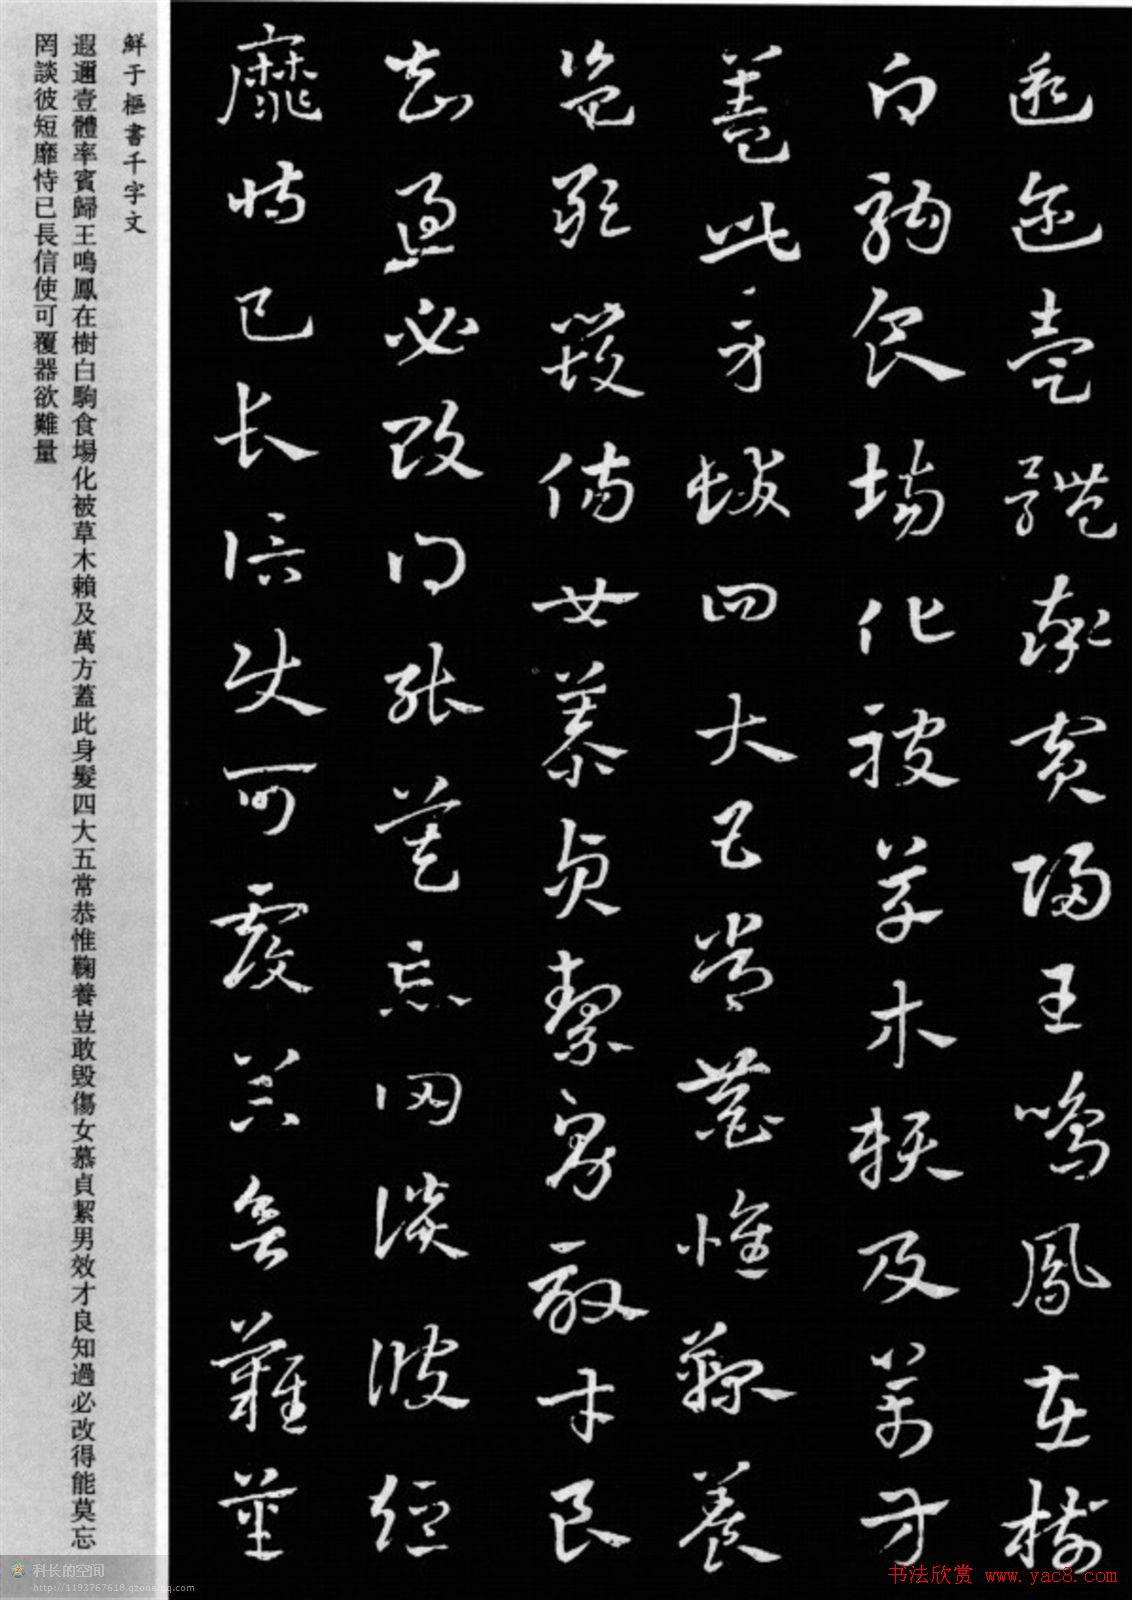 遐邇壹體率賓歸王鳴鳳在樹
白駒食場化被草木賴及萬方
蓋此身髮四大五常恭惟鞠養
豈敢毀傷女慕貞絜男效才良
知過必改得能莫忘罔談彼短
靡恃已長信使可覆器欲難量
鮮于樞書千字文
遐邇壹體率賓歸王鳴鳳在樹白駒食場化被草木賴及萬方蓋此身髮四大五常恭惟鞠養豈敢毀傷女慕貞絜男效才良知過必改得能莫忘
罔談彼短靡恃已長信使可覆器欲難量
科长的空间
http://1193767618.qzone.qq.com
书法欣赏 www.yac8.com